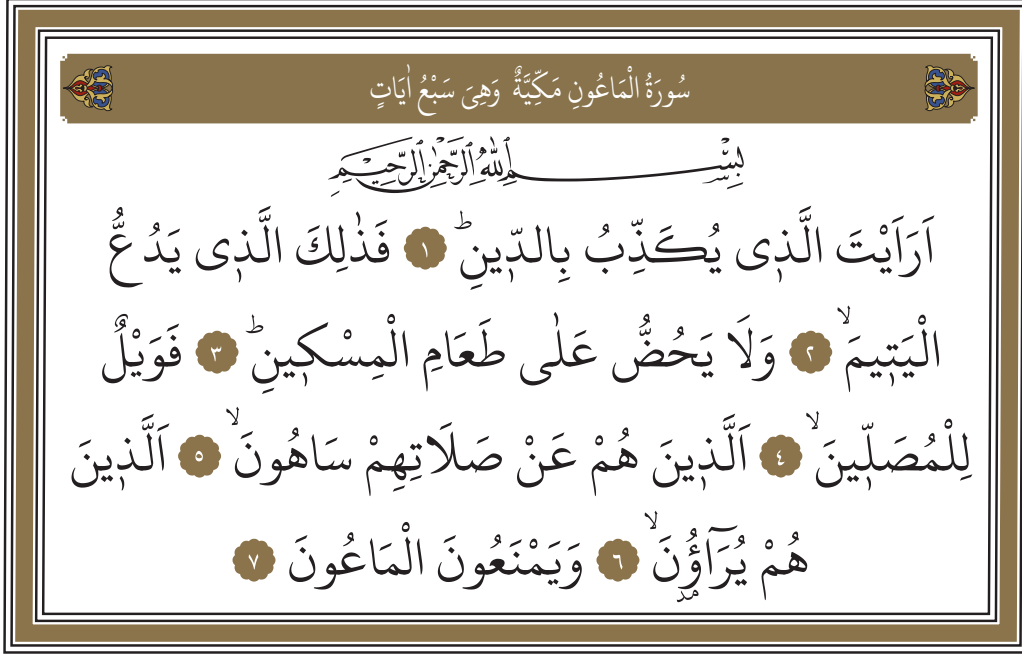 سُورَةُ الْمَاعُونِ مَكِّيَّةٌ وَهِىَ سَبْعُ اٰيَاتٍ
بِسْمِ اللّٰهِ الرَّحْمٰنِ الرَّحِيمِ
اَرَاَيْتَ الَّذٖى يُكَذِّبُ بِالدّٖينِؕ ١ فَذٰلِكَ الَّذٖى يَدُعُّ
الْيَتٖيمَۙ ٢ وَلَا يَحُضُّ عَلٰى طَعَامِ الْمِسْكٖينِؕ ٣ فَوَيْلٌ
لِلْمُصَلّٖينَۙ ٤ اَلَّذٖينَ هُمْ عَنْ صَلَاتِهِمْ سَاهُونَۙ ٥ اَلَّذٖينَ
هُمْ يُرَآؤُ۫نَۙ ٦ وَيَمْنَعُونَ الْمَاعُونَ ٧